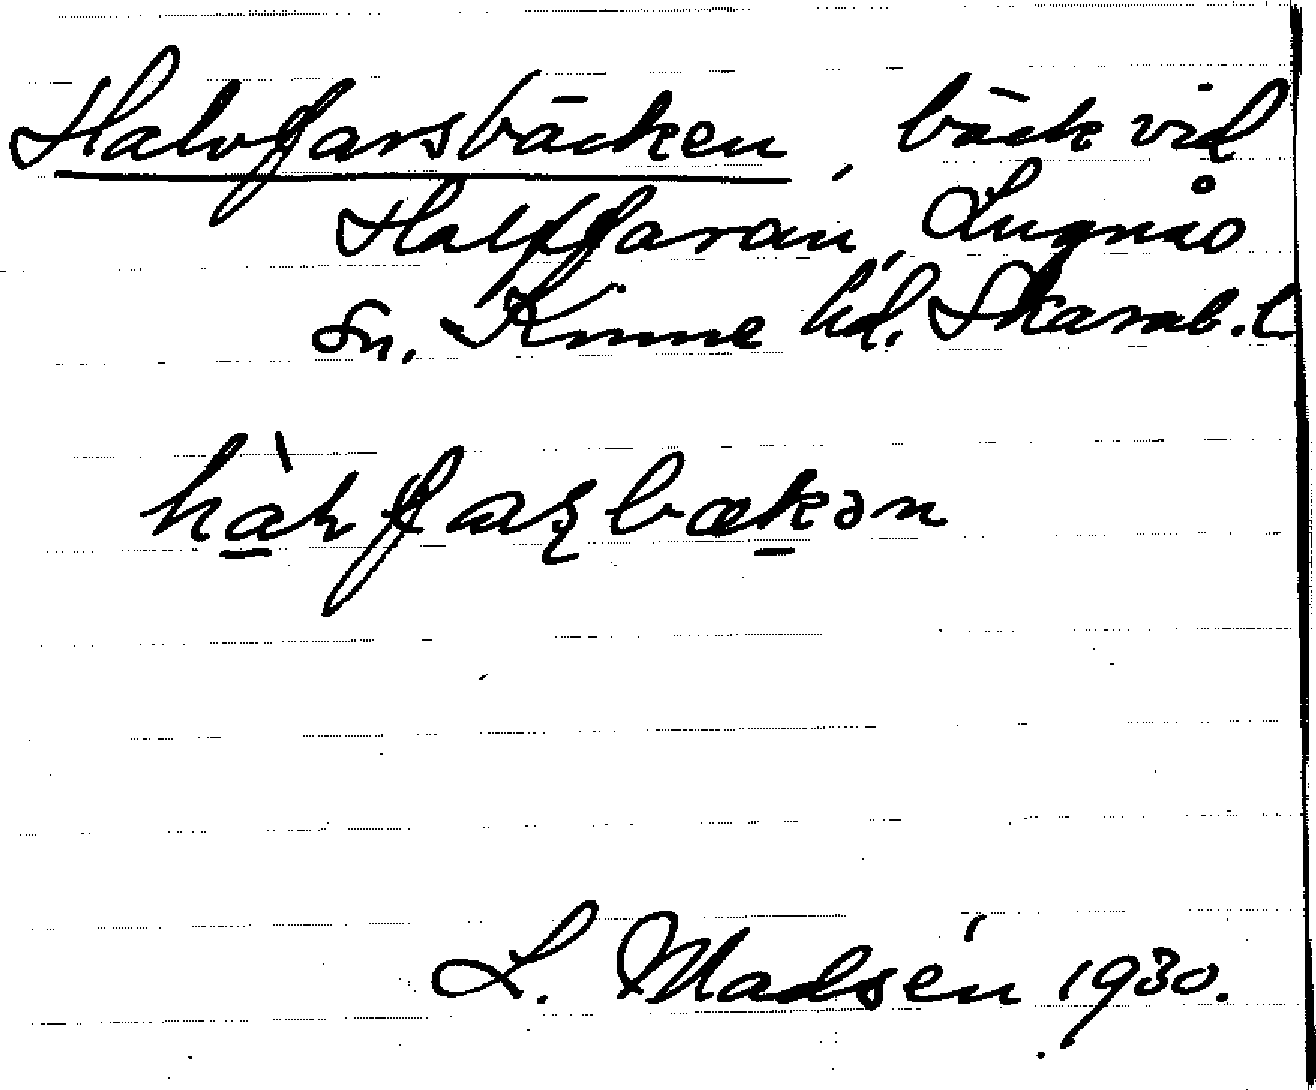 Halvfarsbäcken, bäck vid
Halffaran, Lugnås
sn. Kinne hd. Skarab. l.
L. Madsén 1930.